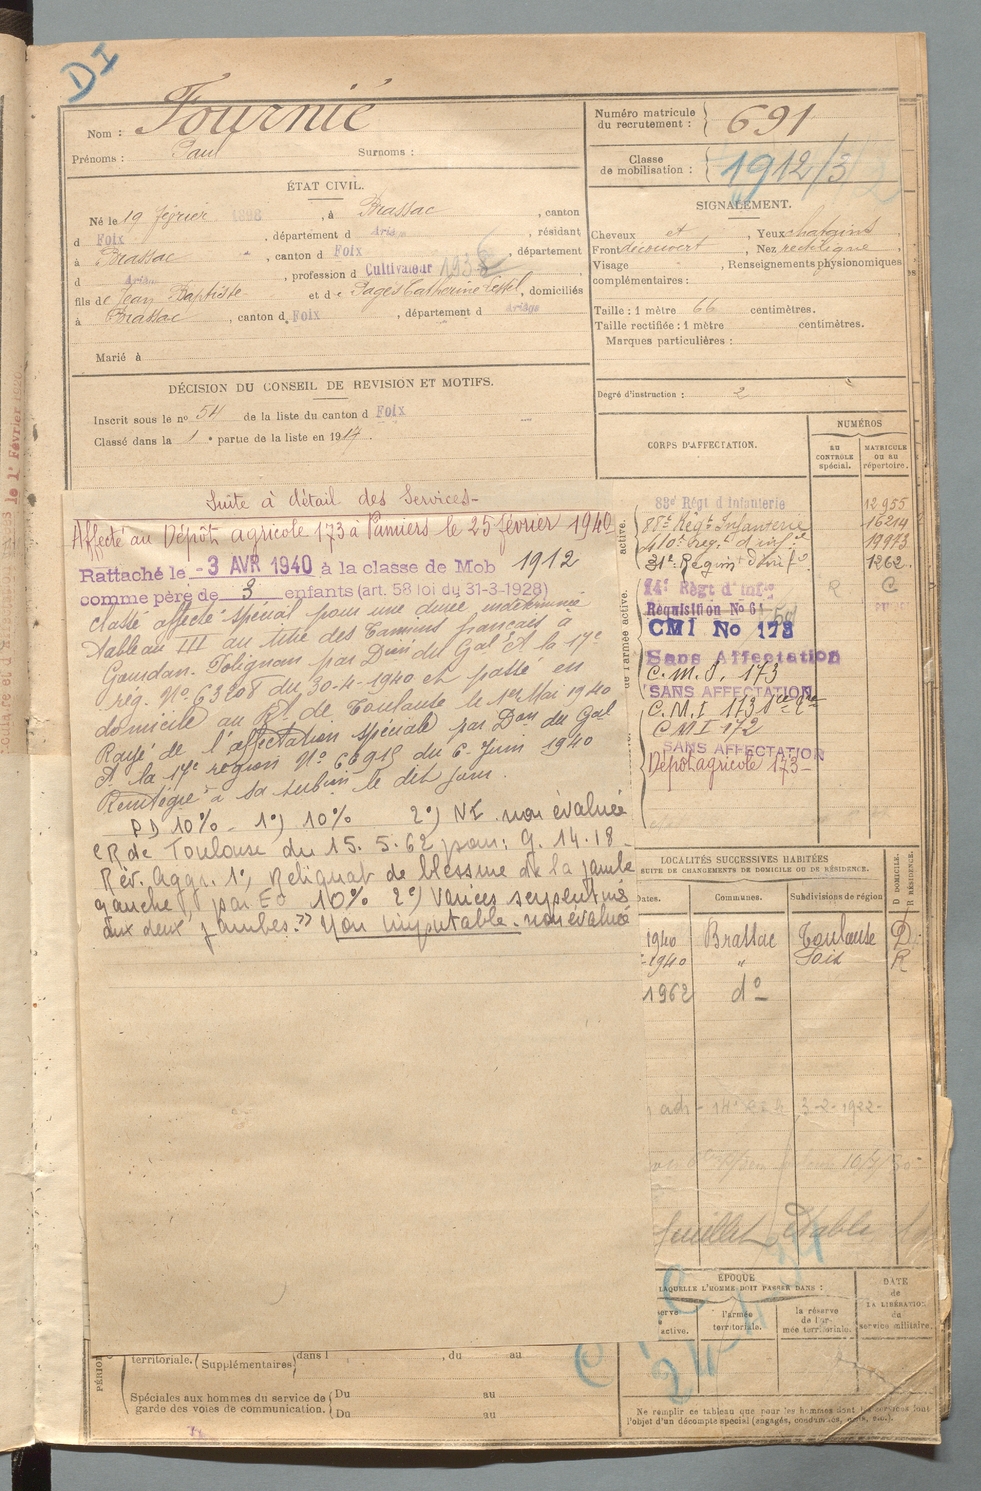 DI
Nom : Fournié
Prénoms : Paul Surnoms :
ÉTAT CIVIL.
Né le 19 février 1898, à Brassac, canton
d Foix, département d Ariège, résidant
à Brassac, canton d Foix, département
d Ariège, profession d Cultivateur 193
fils de Jean Baptiste et de Pagès Catherine, domiciliés
à Brassac, canton d Foix, département d Ariège
Marié à
DÉCISION DU CONSEIL DE REVISION ET MOTIFS.
Inscrit sous le no 54 de la liste du canton d Foix
Classé dans la 1e partue de la liste en 1917.
Numéro matricule
du recrutement : 691
Classe
de mobilisation : 1912/3
SIGNALEMENT.
Cheveux et, Yeux chatains,
Front découvert, Nez rectiligne,
Visage, Renseignements physionomiques
complémentaires :
Taille : 1 mètre 66 centimètres.
Taille rectifiée : 1 mètre centimètres.
Marques particulières :
Degré d'instruction : 2
CORPS D'AFFECTATION.
NUMÉROS
AU CONTRÔLE spécial.
MATRICULE OU AU répertoire.
83e Régt d'Infanterie 12955
88e Régt Infanterie 16214
410e reg.t d'infie 19973
31e Region d'inf. 1262
14e Régt d'Infie R C
Réquisition No 61
CMI No 173
Sans Affectation
C.M.I. 173
SANS AFFECTATION
C.M.I 173
C M I 172
SANS AFFECTATION
Dépot agricole 173-
active.
de l'armée active.
Suite à détail des Services-
Affecté au Dépôt agricole 173 à Pamiers le 25 février 1940
Rattaché le -3 AVR 1940 à la classe de Mob 1912
comme père de 3 enfants (art. 58 loi du 31-3-1928)
Classé affecté spécial pour une durée indéterminée
Tableau III au titre des Camions français à
Gourdan. Polignan par Don du Gal Ct la 17e
rég. No 63208 du 30-4-1940 et passé en
domicile au Rt de Toulouse le 1er Mai 1940
Rayé de l'affectation spéciale par Don du Gal
Ct la 17e région No 66915 du 6- Juin 1940
Réintégré à sa subon le dit jour.
PD 10% - 1°) 10% 2°) NI. non évaluée
CR de Toulouse du 15. 5. 62 pour: G. 14.18-
Rév. Aggr. 1°, Reliquat de blessure de la jambe
gauche par EO 10% 2°) Varices serpentines
aux deux jambes." Non imputable. non évaluée
LOCALITÉS SUCCESSIVES HABITÉES
SUITE DE CHANGEMENTS DE DOMICILE OU DE RÉSIDENCE.
Dates. Communes. Subdivisions de région D DOMICILE. R RÉSIDENCE.
1940 Brassac Toulouse D.
-1940 " Foix R
1962 do
3-2-1922-
10/7/30
ÉPOQUE
LAQUELLE L'HOMME DOIT PASSER DANS :
l'armée territoriale.
la réserve de l'armée territoriale.
DATE
de
LA LIBÉRATION
du
service militaire.
PÉRIOD
territoriale. Supplémentaires dans l, du au
Spéciales aux hommes du service de
garde des voies de communication.
Du au
Du au
Ne remplir ce tableau que pour les hommes dont les services font
l'objet d'un décompte spécial (engagés, condamnés, omis, etc.).